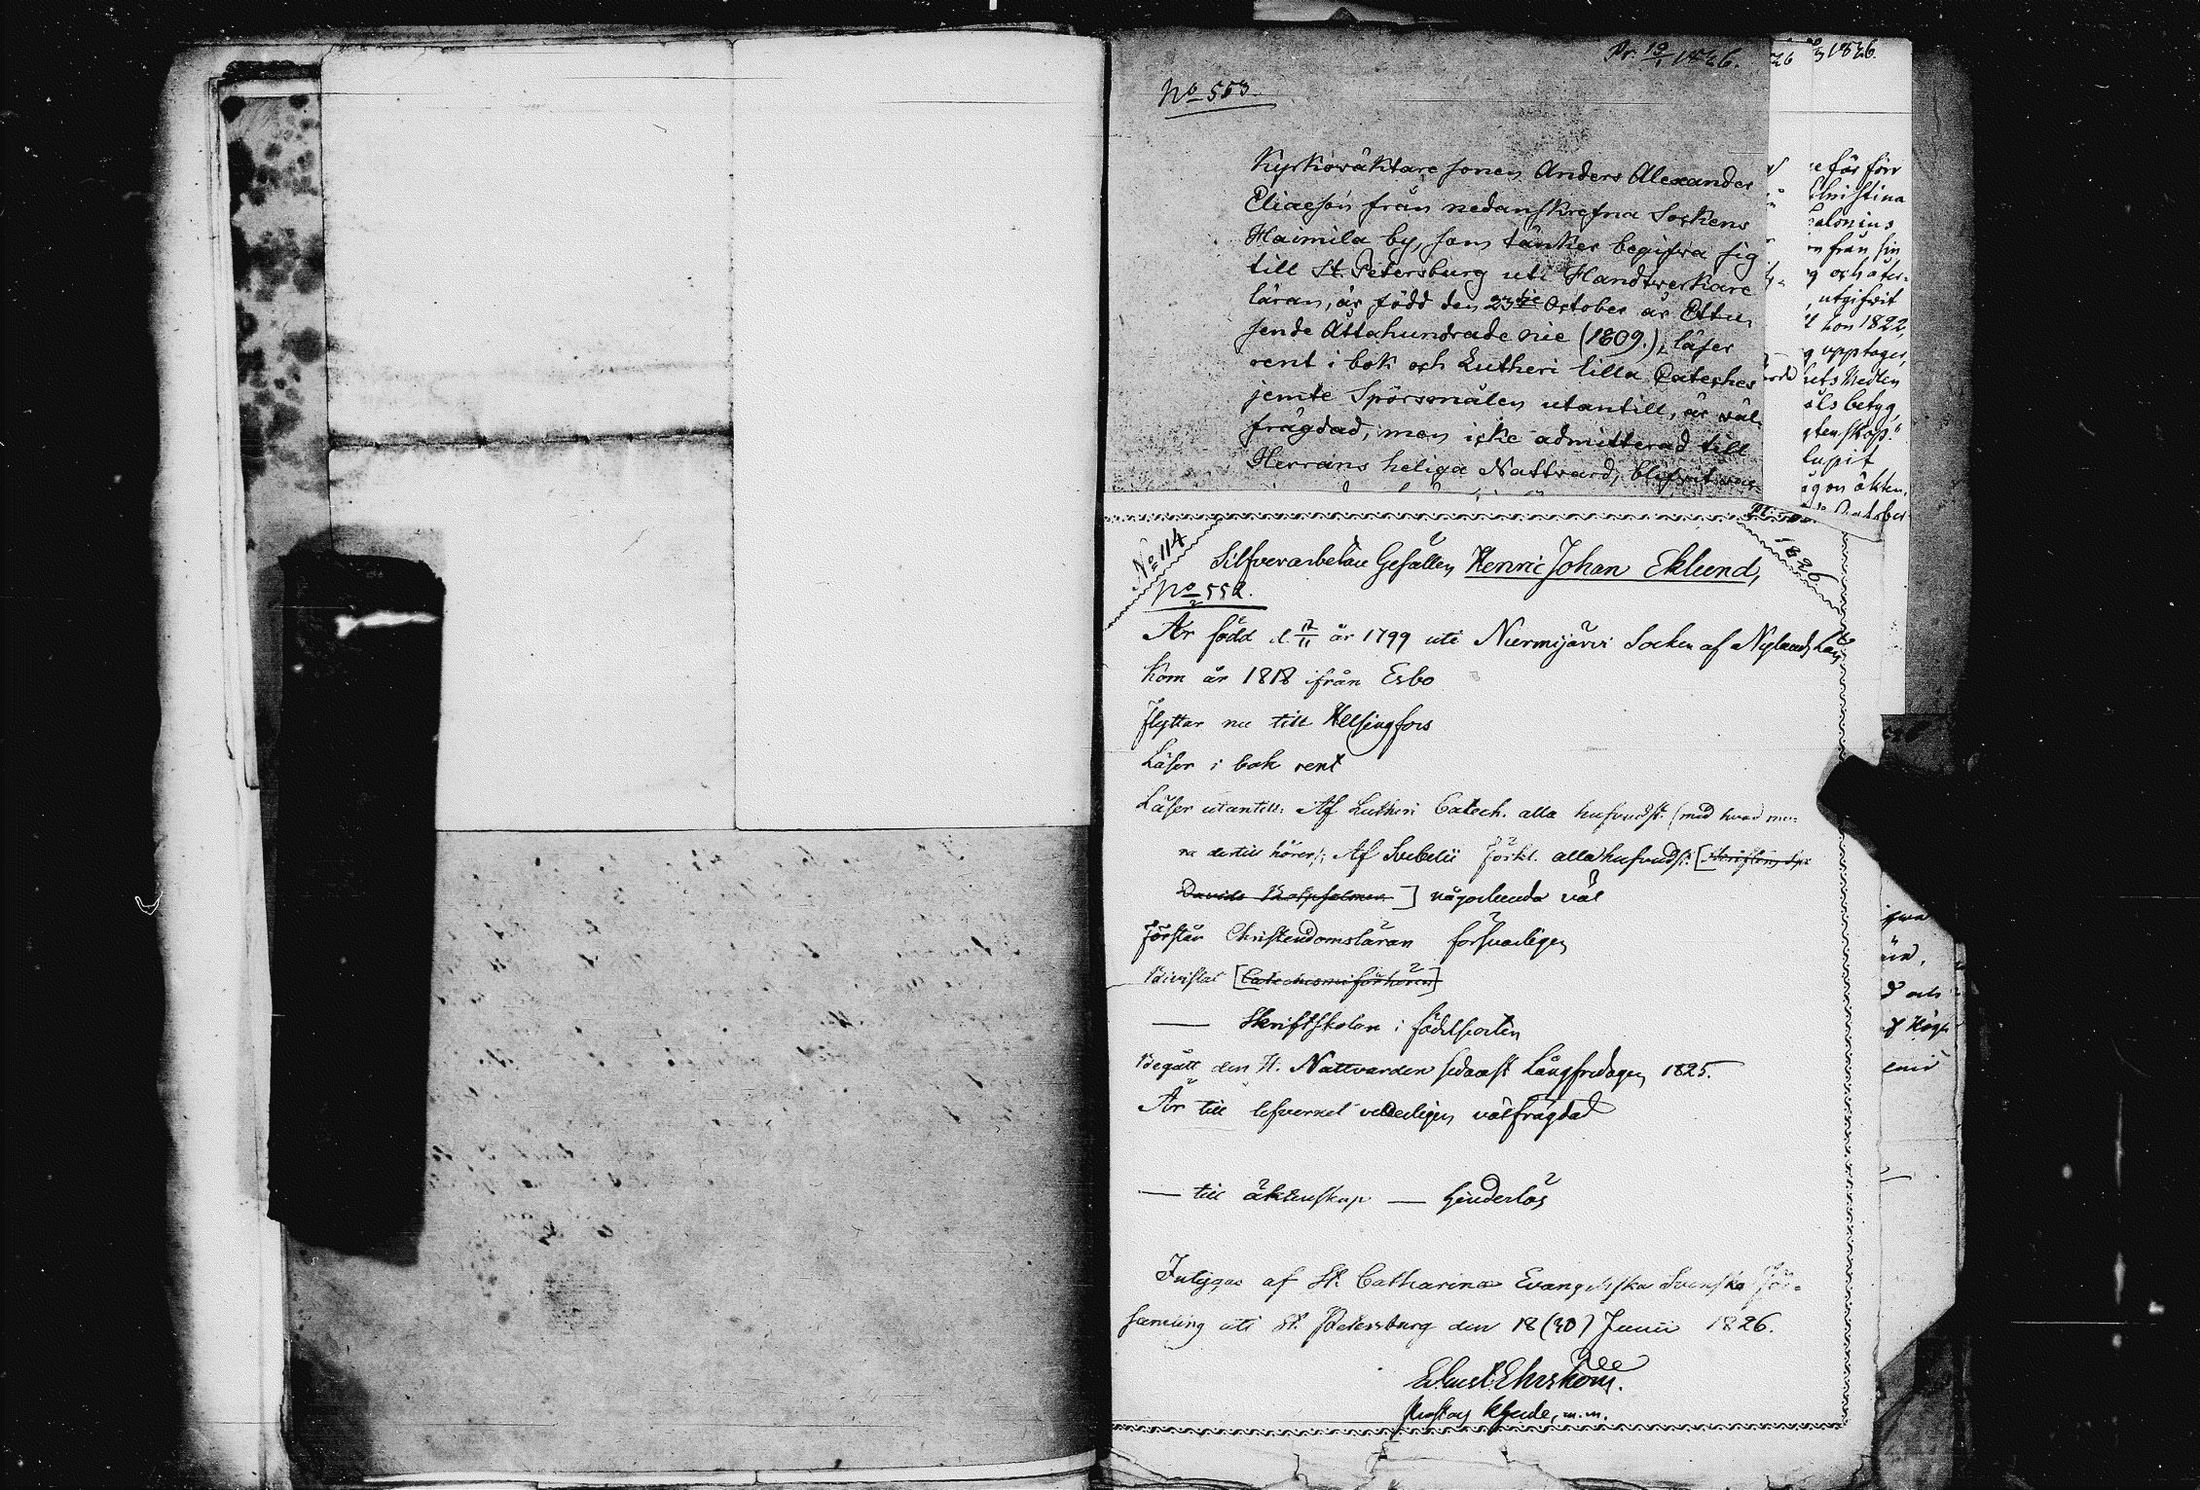 Pr. 19/1 1826.
No 553
Kyrkowäktare sonen Anders Alexander
Eliaeson från nedanskrefna Sockens
Haimila by, som tänker begifwa sig
till St. Petersburg uti Handtwerkare
läran, är född den 23die October år Ettu-
sende Åttahundrade nie (1809.), läser
rent i bok och Lutheri lilla Cateches
jemte Spörsmålen utantill, är väl
frägdad, men icke admitterad till
Herrans heliga Nattward, blifvit
26
3 1826.
e för förr
Christina
alonius
från sin
och åter-
utgifvit
hon 1822,
upptager,
hets Medlem
äls betyg,
gtenskap."
lupit
gon äkten.
October
No 114
1826
Silfverarbetare Gesällen Henric Johan Eklund,
No 552.
Är född d. 17/11 år 1799 uti Nurmijärvi Socken af Nylands Län
Kom år 1818 ifrån Esbo
Flyttar nu till Helsingfors
Läser i bok rent
Läser utantill: Af Lutheri Catech. alla hufvudst. (med hvad me-
ra dertill hörer); Af Svebelii Förkl. alla hufvudst. [Skriftens Spr
Davids Botpsalmer] någorlunda väl
Förstår Christendomsläran försvarligen
Bevistat [Catechismiförhören]
— Skriftskolan i födelseorten
Begått den H. Nattvarden sedanst Långfredagen 1825.
Är till lefvernet välfrägdad
— till äktenskap — hinderlös
Intygas af St. Catharinæ Evangeliska Svenska För-
samling uti St. Petersburg den 18 (30) Junii 1826.
Ehrström.
Pastor
m.m.
d och